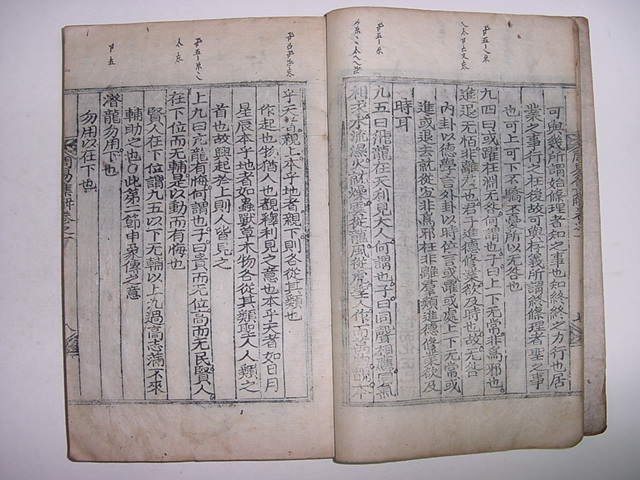 可與幾所謂始條理者知之事也知終終之力行也居
業之事行之在後故可與存義所謂終條理者聖之事
也可上可下不驕不憂所以无咎也
九四曰或躍在淵无咎何謂也子曰上下无常非爲邪也
進退无恒非離羣也君子進德修業欲及時也故无咎
內卦以德學言外卦以時位言或躍或處上下无常或
進或退去就從宜非爲邪枉非離羣類進德修業欲及
時耳
九五曰飛龍在天利見大人何謂也子曰同聲相應同氣
相求水流濕火就燥雲從龍風從虎聖人作而萬物覩本
乎天者親上本乎地者親下則各從其類也
作起也物猶人也覩釋利見之意也本乎天者如日月
星辰本乎地者如蟲獸草木物各從其類聖人人類之
首也故興起於上則人皆見之
上九曰亢龍有悔何謂也子曰貴而无位高而无民賢人
在下位而无輔是以動而有悔也
賢人在下位謂九五以下无輔以上九過高志滿不來
輔助之也○此第二節申象傳之意
潛龍勿用下也
勿用以在下也